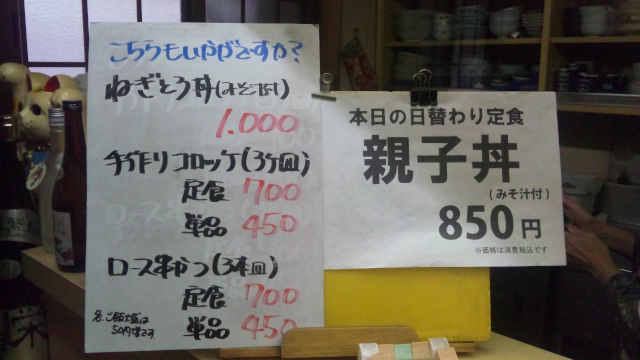 こちらもいかがですか?
ねぎとろ丼(みそ汁付)
1.000
手作りコロッケ(3ケ皿)
定食 700
単品 450
ロース串かつ(3本皿)
定食 700
単品 450
各、ご飯大盛は
50円増です。
本日の日替わり定食
親子丼
(みそ汁付)
850円
※価格は消費税込です